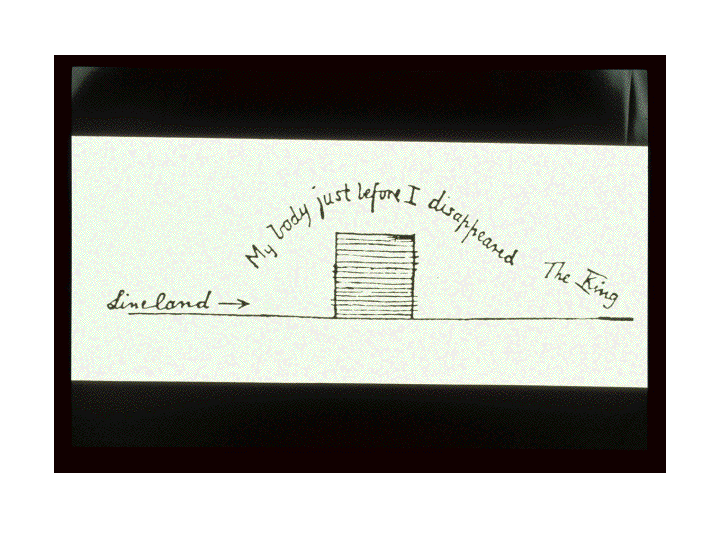 My body just before I disappeared
The King
Lineland